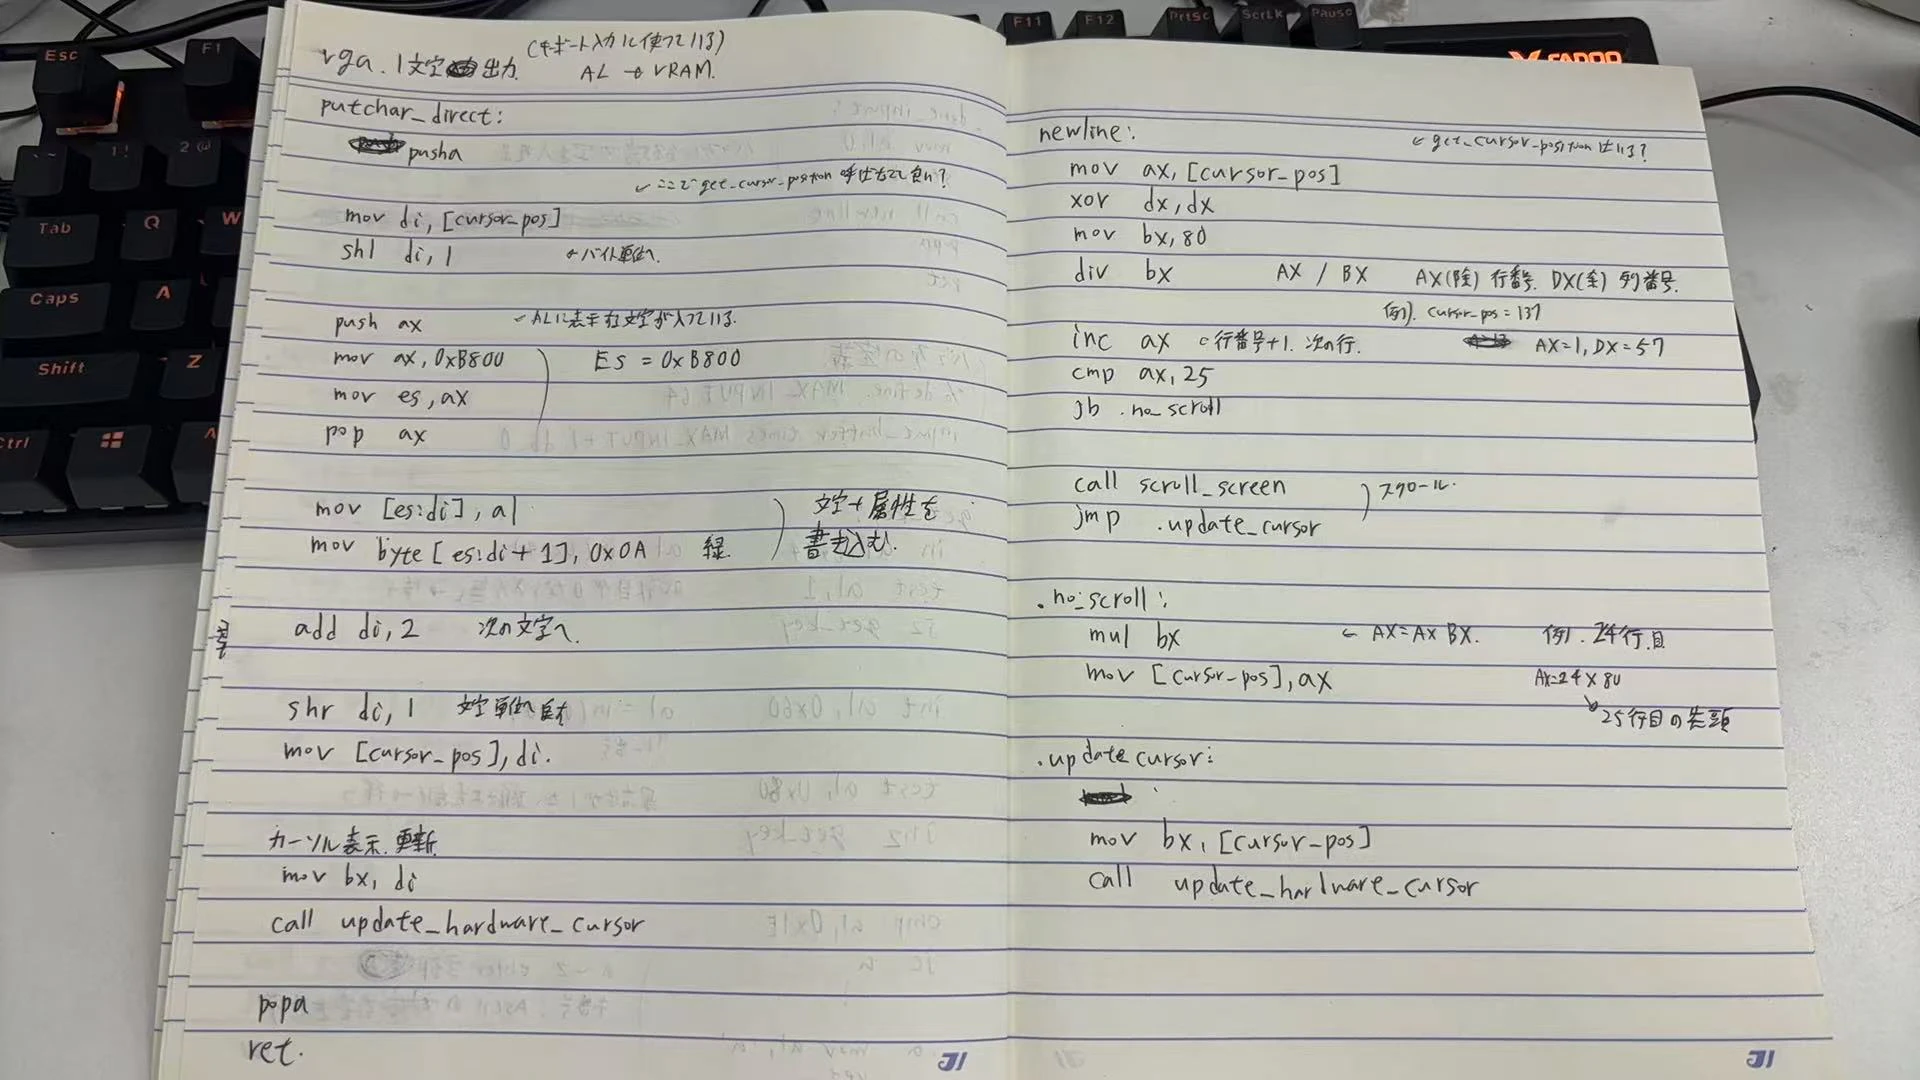 vga. 1文字出力 (キーボード入力に使っている)
AL → VRAM.
putchar_direct:
pusha
↙ ここで get_cursor_position 呼ばなくて良い?
mov di, [cursor_pos]
shl di, 1 ←バイト単位へ
push ax ← ALに表示する文字が入っている.
mov ax, 0xB800 ES = 0xB800
mov es, ax
pop ax
mov [es:di], al 文字+属性を
mov byte [es:di + 1], 0x0A 緑. 書き込む.
add di, 2 次の文字へ.
shr di, 1 文字単位へ
mov [cursor_pos], di.
カーソル表示.更新
mov bx, di
call update_hardware_cursor
popa
ret.
newline:
↙ get_cursor_position は いる?
mov ax, [cursor_pos]
xor dx, dx
mov bx, 80
div bx AX / BX AX(除) 行番号. DX(余) 列番号.
例). cursor_pos = 137
inc ax ← 行番号+1. 次の行. AX=1, DX=57
cmp ax, 25
jb .no_scroll
call scroll_screen スクロール.
jmp .update_cursor
.no_scroll:
mul bx ← AX=AX BX. 例). 24行目
mov [cursor_pos], ax AX=24×80
↘ 25行目の先頭
.update cursor:
mov bx, [cursor_pos]
call update_hardware_cursor
Esc
F1
F11
F12
PrtSc
ScrLk
Pause
Tab
Q
W
Caps
A
Shift
Z
Ctrl